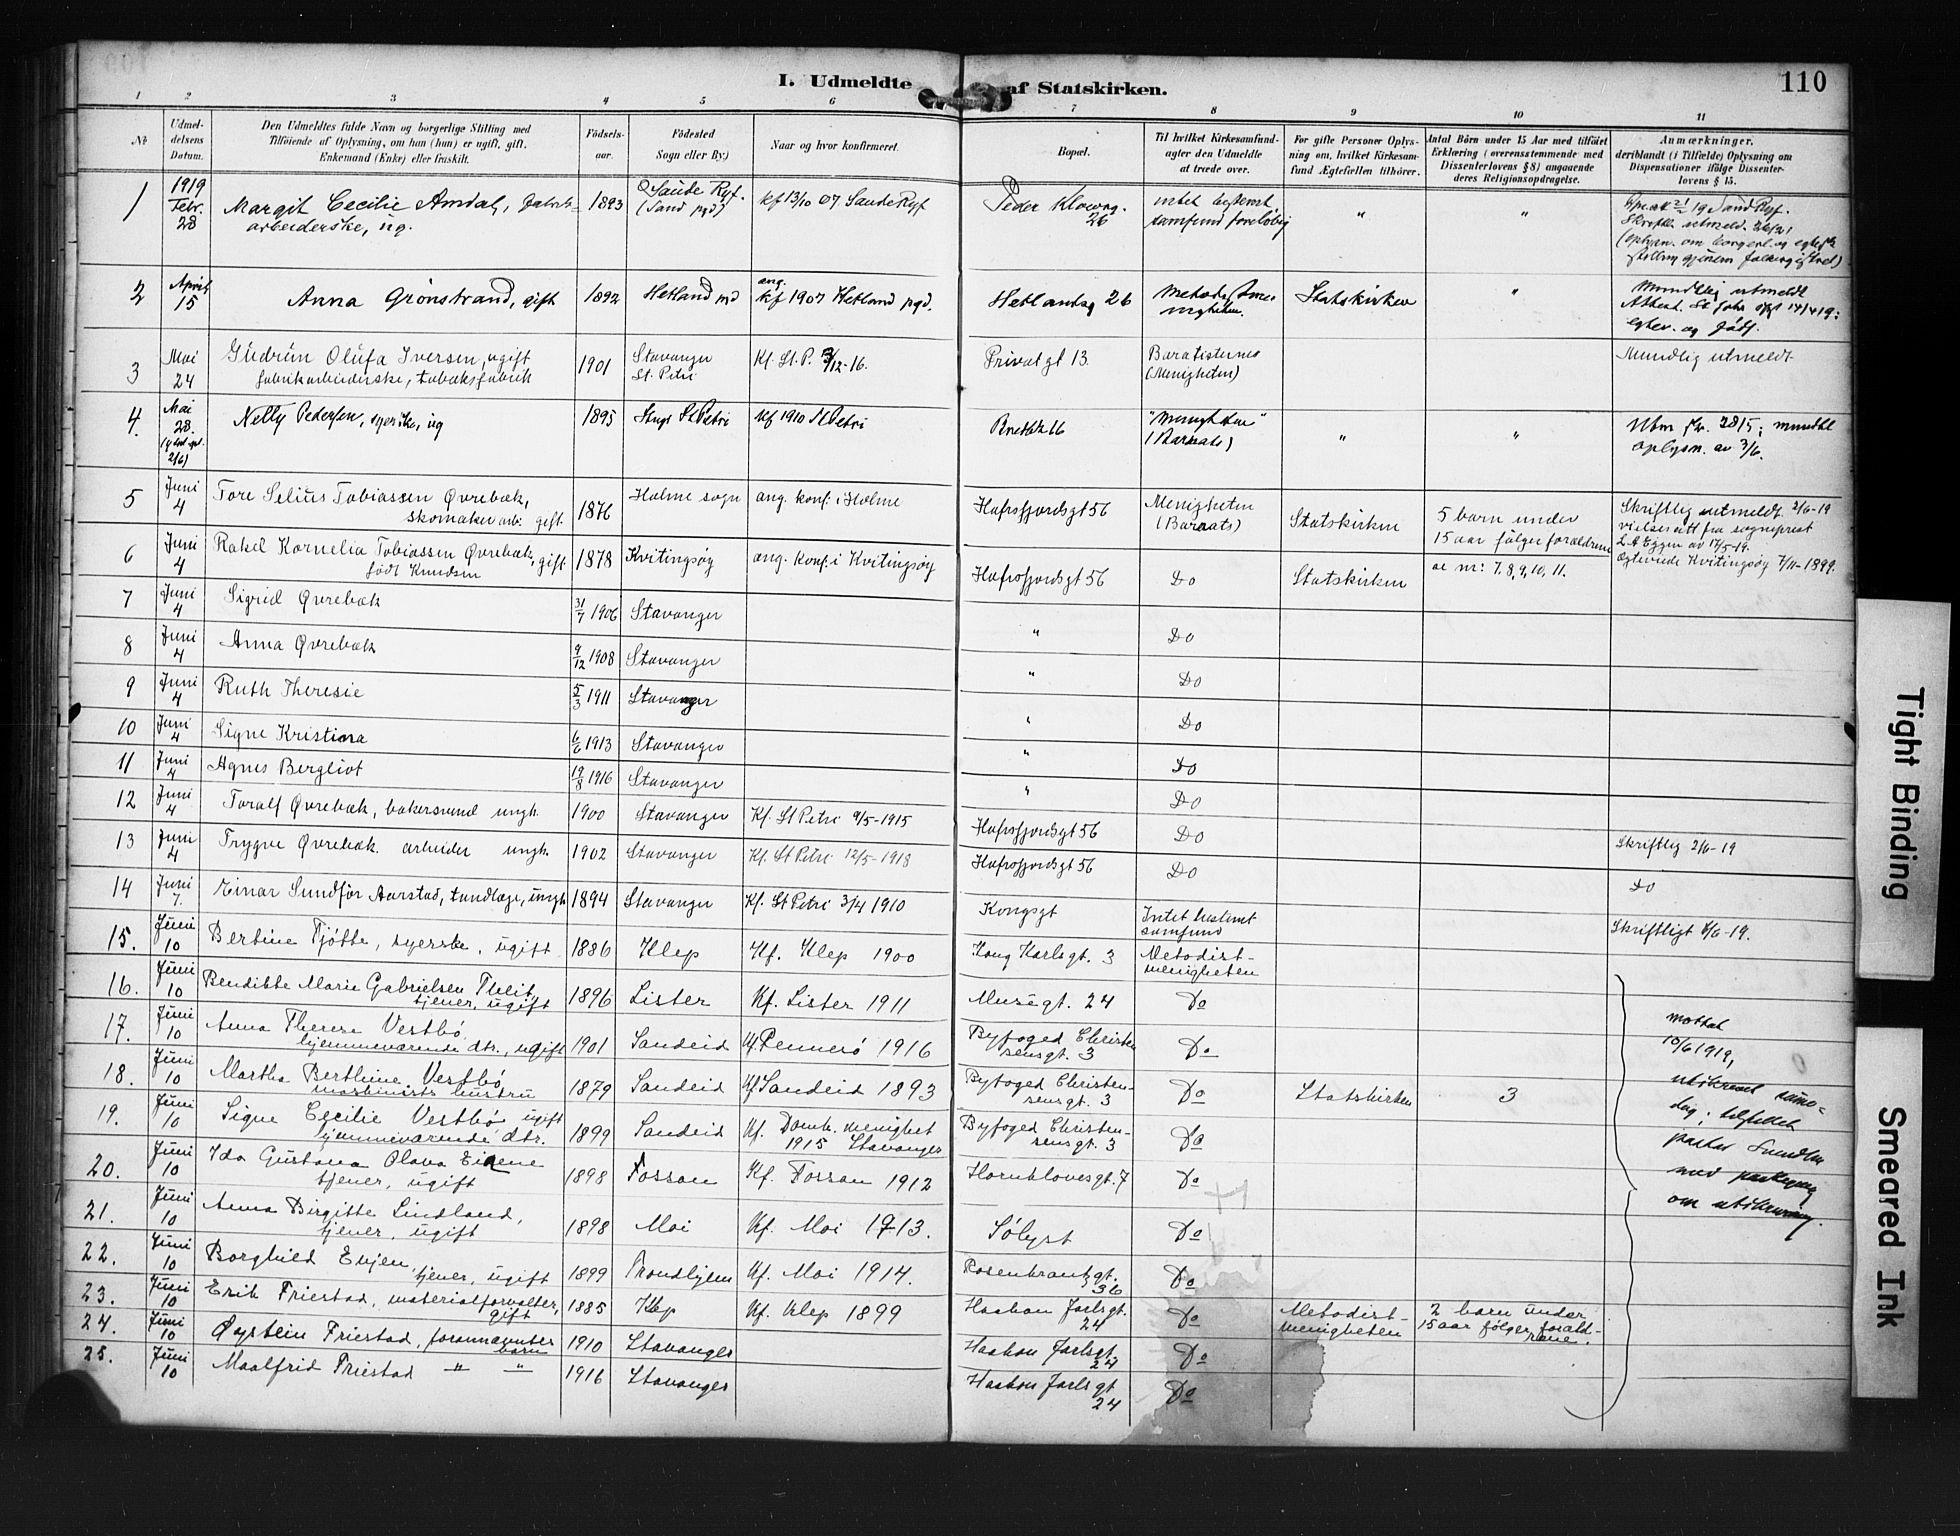 110
I. Udmeldte af Statskirken.
1 2 3 4 5 6 7 8 9 10 11
No
Udmeldelsens Datum.
Den Udmeldtes fulde Navn og borgerlige Stilling med
Tilföiende af Oplysning, om han (hun) er ugift, gift,
Enkemand (Enke) eller fraskilt.
Födselsaar.
Födested
Sogn eller By.)
Naar og hvor konfirmeret.
Bopæl.
Til hvilket Kirkesamfund-
agter den Udmeldte
at træde over.
For gifte Personer Oplys-
ning om, hvilket Kirkesam-
fund Ægtefællen tilhörer.
Antal Börn under 15 Aar med tilföiet
Erklæring (overensstemmende med
Dissenterlovens § 8) angaaende
deres Religionsopdragelse.
Anmærkninger,
deriblandt (i Tilfælde) Oplysning om
Dispensationer ifölge Dissenter-
lovens § 15.
1 1919 Febr. 28 Margit Cecilie Amdal, arbeiderske, ug. 1893 Saude Ryf. (Sand pgd) kf 13/10 07 Saude Ryf Peder Klowsg. 26 intet bestemt samfund foreløbig " "
2 April 15 Anna Grønstrand, gift 1892 Hetland ang. kf 1907 Hetland pgd. Hetlandsg 26 Statskirken " Mundtlig utmeldt
3 Mai 24 Gudrun Olufa Iversen, ugift fabrikarbeiderske, tobaksfabrik 1901 Stavanger St. Petri Kf. St. P. /12-16. Privat gt 13. (Menigheten) Mundlig utmeldt
4. Mai 28. Nelly Pedersen, syerske, ug 1895 St Petri kf 1910 St Petri "Menigheten" (Baraats) " " mundtl oplysn. av 3/6.
5 Juni 4 Tore Selius Tobiassen Øvrebæk, skomaker arb. gift. 1876 Halme sogn ang. konf. i Halme Hafrsfjordsgt 56 Menigheten (Baraats) Statskirken 5 barn under 15 aar følger forældrene Skriftlig utmeldt 2/6-19 vielsesatt fra sogneprest L. A. Eggen av 17/5-19.
6 Juni 4 Rakel Kornelia Tobiassen Øvrebæk, gift født Knudsen 1878 Kvitingsøy ang. konf. i Kvitingsøy Hafrsfjordsgt 56 Do Statskirken nr: 7, 8, 9, 10, 11. Ægteviede Kvitingsøy 7/11-1899.
7 Juni 4 Sigrid Øvrebæk 31/7 1906 Stavanger " Do
8 Juni 4 Anna Øvrebæk 9/12 1908 Stavanger " Do
9 Juni 4 Ruth Theresie 5/3 1911 Stavanger " Do
10 Juni 4 Signe Kristina 6/6 1913 Stavanger " Do
11 Juni 4 Agnes Bergliot 19/8 1916 Stavanger " Do
12 Juni 4 Toralf Øvrebæk, bakersvend ungk. 1900 Stavanger Kf. St Petri 9/5-1915 Hafrsfjordsgt 56 Do Skriftlig 2/6-19
13 Juni 4 Trygve Øvrebæk arbeider ungk. 1902 Stavanger Kf. St Petri 12/5-1918 Hafrsfjordsgt 56 Do Do
14 Juni 7. Einar Sundfør Aarstad, tandlæge, ungk 1894 Stavanger Kf. St Petri 3/4 1910 Kongsgt Intet bestemt samfund Skriftligt 6/6-19.
15. Juni 10 Bertine Tjøtte, syerske, ugift 1886 Klep Kf. Klep 1900 Kong Karlsgt. 3 Metodist-menigheten
16. Juni 10 Bendikte Marie Gabrielsen Theit, tjener, ugift 1896 Lister Kf. Lister 1911 Musegt. 24 Do
17. Juni 10 Anna Therese Vestbø hjemmeværende dtr., ugift 1901 Sandeid Kf Rennesø 1916 Byfoged Christensensgt. 3 Do
18. Juni 10 Martha Berthine Vestbø maskinists hustru 1879 Sandeid Kf Sandeid 1893 Byfoged Christensensgt. 3 Do Statskirken 3
19. Juni 10 Signe Cecilie Vestbø ugift hjemmeværende dtr. 1899 Sandeid Kf. Domk. menighet 1915 Stavanger Byfoged Christensensgt. 3 Do
20. Juni 10 Ida Gustava Olava Eidene tjener, ugift 1898 Fossan Kf. Fossan 1912 Hornklovesgt. 7 Do
21. Juni 10 Anna Birgitte Lindland, tjener, ugift 1898 Moi Kf. Moi 1913. Sølyst Do
22. Juni 10 Borghild Evjen, tjener, ugift 1899 Trondhjem Kf. Moi 1914. Rosenkrantzgt. 36 Do
23. Juni 10 Erik Friestad, materialforvalter, gift 1885 Klep Kf. Klep 1899 Haakon Jarlsgt. 24 Do Metodist-menigheten 2 barn under 15 aar følger forældrene.
24. Juni 10 Øystein Friestad, forannævntes barn 1910 Stavanger Haakon Jarlsgt. 24 Do
25. Juni 10 Maalfrid Friestad " " 1916 Stavanger Haakon Jarlsgt 24 Do
mottat
10/6 1919,
utskrevet samme-
dag; tilstillet
pastor Svendsen
med paategning
om utskrivning.
Tight Binding
Smeared Ink